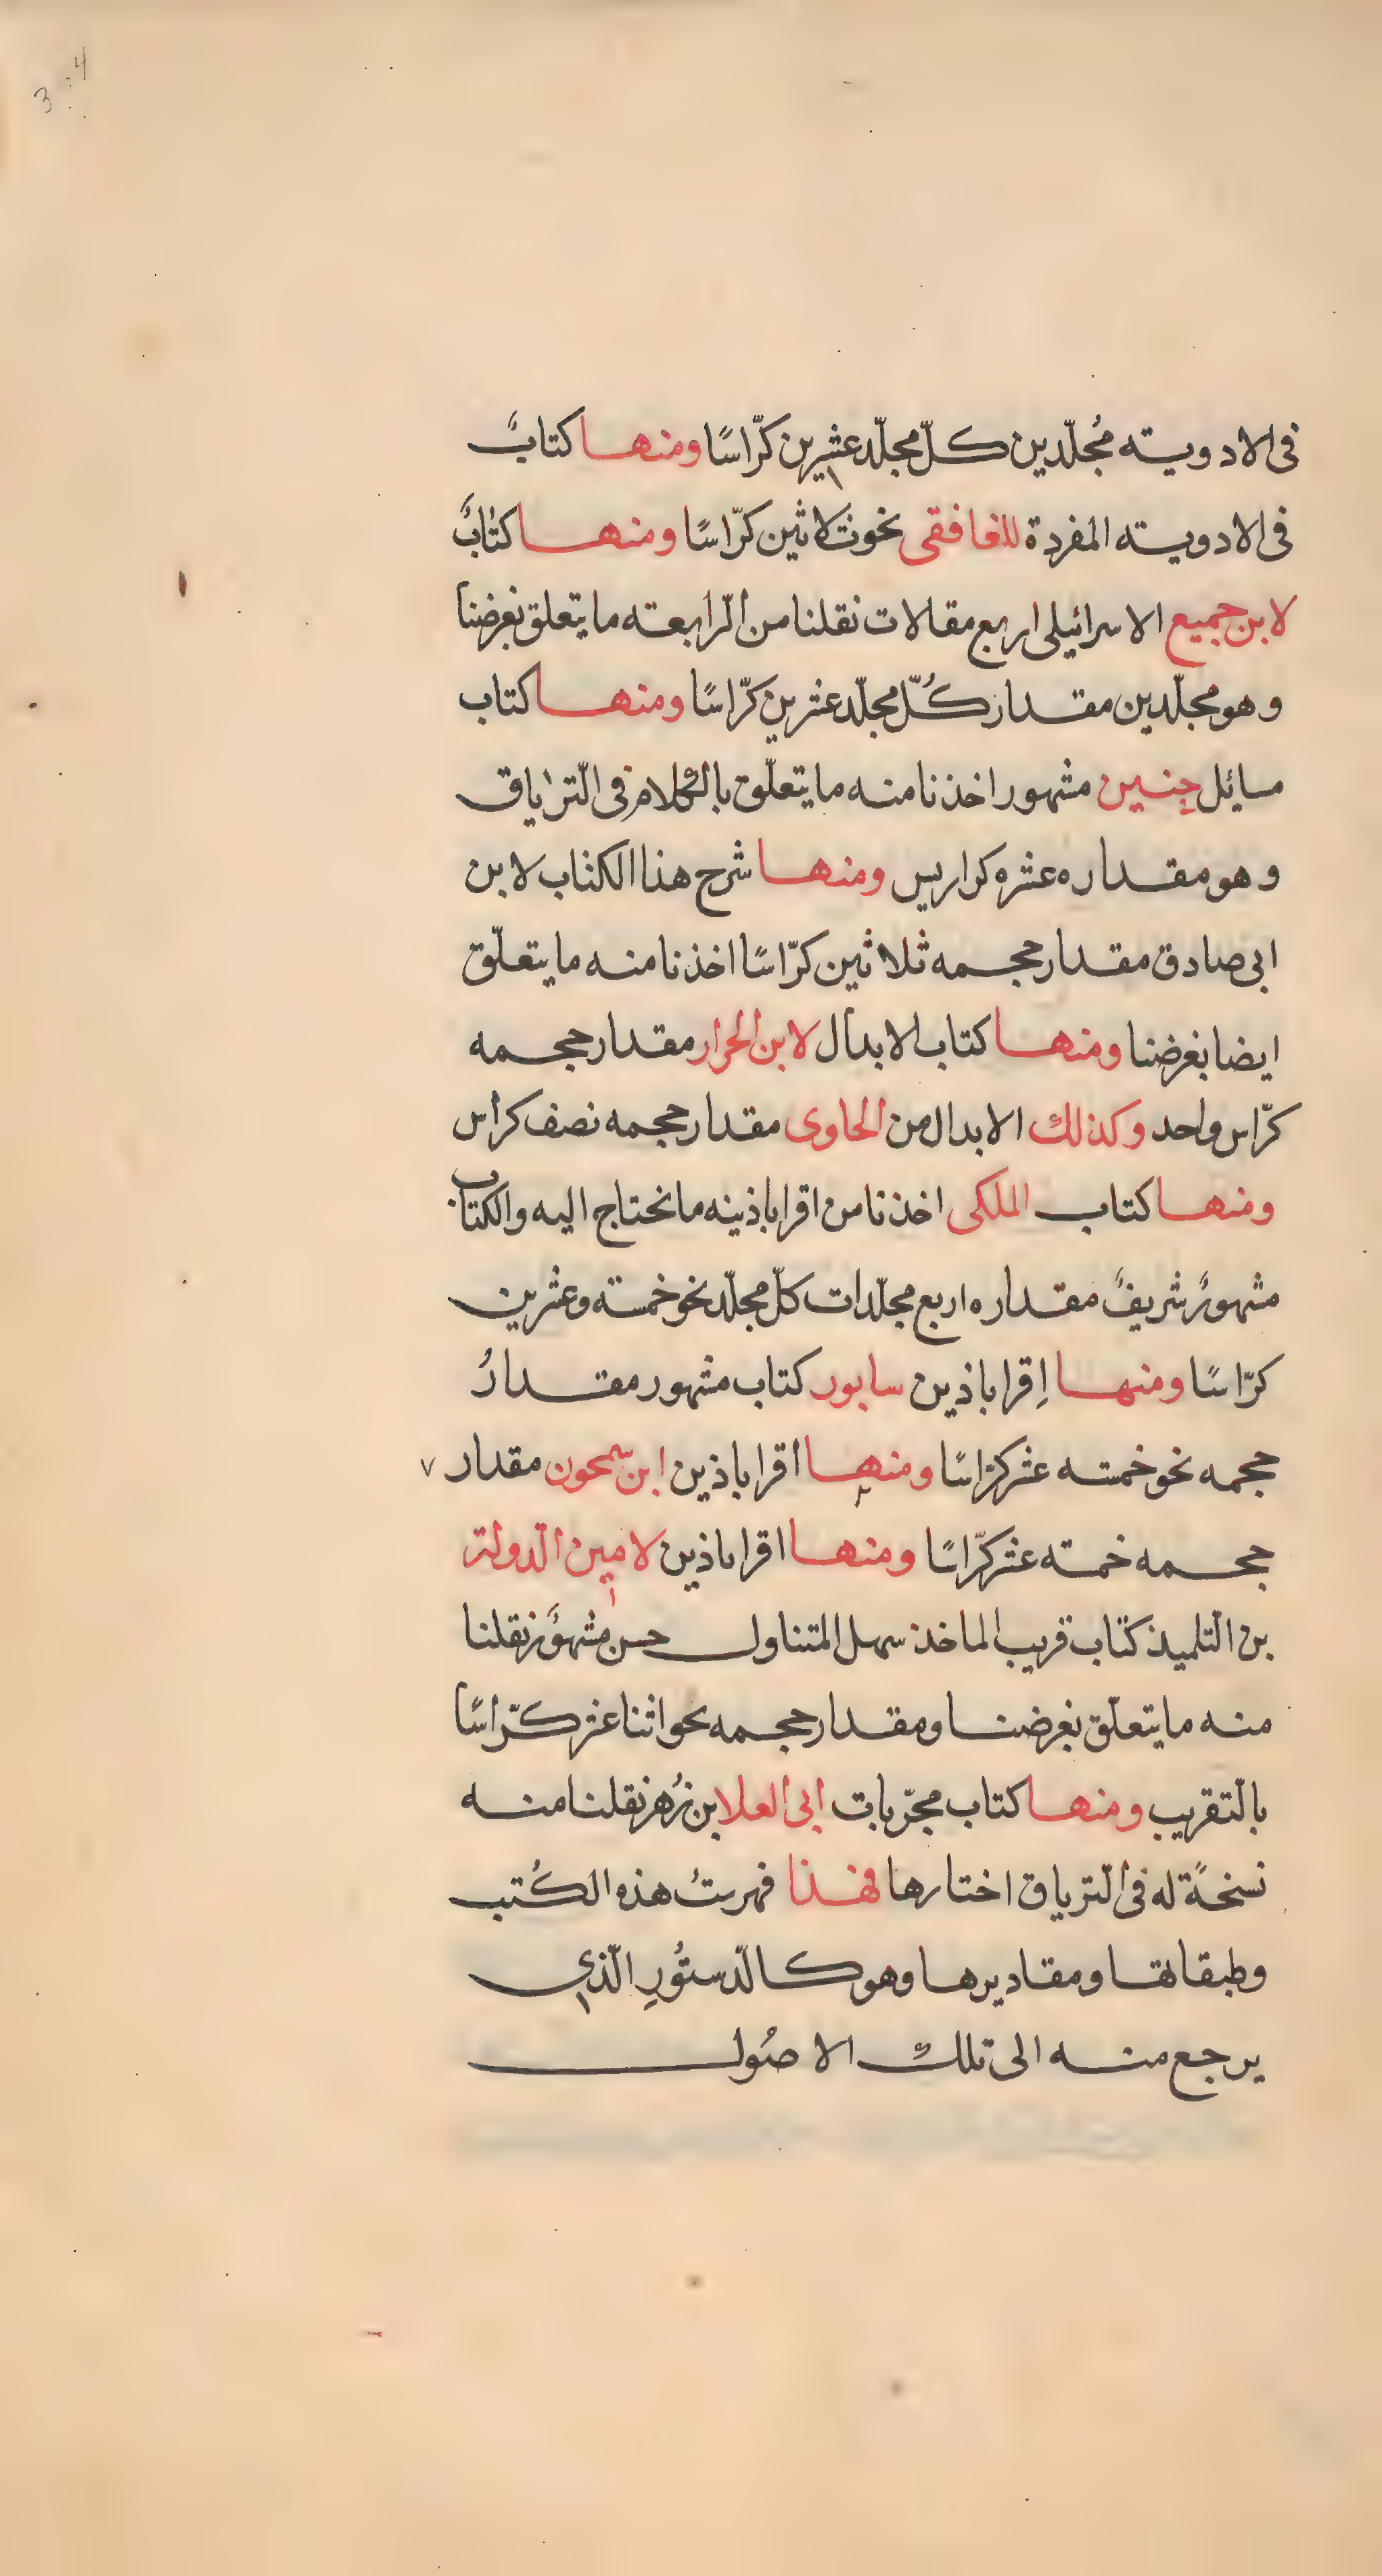 في الادويته مُجلّدين كلّ مجلّد عشرين كرّاسًا ومنها كتابٌ
في الادويته المفردة للغافقى نحو ثلاثين كرّاسًا ومنها كتابٌ
لابن جميع الاسرائيلى اربع مقالات نقلنا من الرابعته ما يتعلق بغرضنا
وهو مجلّدين مقدار كُلّ مجلّد عشرين كرّاسًا ومنها كتاب
مسائل حِنين مشهور اخذنا منه ما يتعلّق بالكلام في التّرياق
وهو مقداره عشره كراريس ومنها شرح هذا الكتاب لابن
ابى صادق مقدار حجمه ثلاثين كرّاسًا اخذنا منه ما يتعلّق
ايضا بغرضنا ومنها كتاب الابدال لابن الحرار مقدار حجمه
كرّاس واحد وكذلك الابدال من الحاوى مقدار حجمه نصف كراس
ومنها كتاب الملكى اخذنا من اقراباذينه ما نحتاج اليه والكتاب
مشهورٌ شريفٌ مقداره اربع مجلّدات كلّ مجلّد نحو خمسته وعشرين
كرّاسًا ومنها اِقراباذين سابور كتاب مشهور مقدارُ
حجمه نحو خمسته عشر كرّاسًا ومنها اقراباذين ابن سمحون مقدار ٧
حجمه خمسته عشر كرّاسًا ومنها اقراباذين لامين الدولة
بن التلميذ كتاب قريب الماخذ سهل المتناول حسن مشهوٌر نقلنا
منه ما يتعلّق بغرضنا ومقدار حجمه نحو اثنا عشر كرّاسًا
بالتّقريب ومنها كتاب مجرّبات ابى العلا بن زُهر نقلنا منه
نسخةً له في التّرياق اختارها فهذا فهرستُ هذه الكُتب
وطبقاتها ومقاديرها وهو كالدّستُورِ الّذي
يرجع منه الى تلك الاصُول